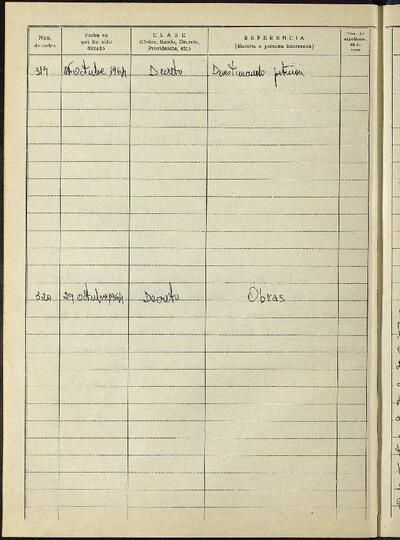 Núm. de orden
Fecha en que ha sido dictado
CLASE
(Orden, Bando, Decreto, Providencia, etc.)
REFERENCIA
(Materia o persona interesada)
319 Octubre 1964 Decreto Desestimando petición
320 29 Octubre 1964 Decreto Obras